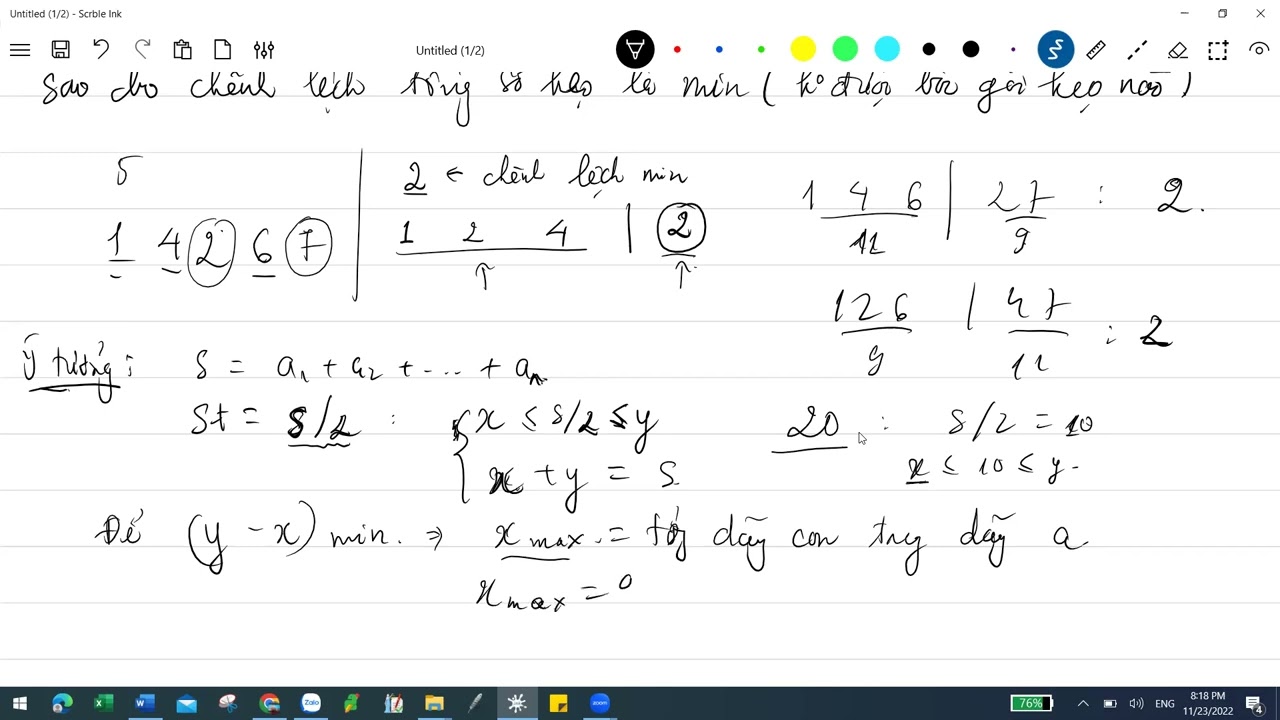 Untitled (1/2) - Scrble Ink
Untitled (1/2)
sao cho chênh lệch tổng số kẹo là min ( k° được bóc gói kẹo nào )
5
1 4 2 6 7
2 ← chênh lệch min
1 2 4 | 2
↑ ↑
1 4 6 | 2 7 : 2.
11 9
1 2 6 | 4 7 : 2
9 11
Ý tưởng : S = a1 + a2 + ... + an
St = S/2 : { x ≤ S/2 ≤ y
x + y = S
20 : S/2 = 10
x ≤ 10 ≤ y
Để (y - x) min. ⇒ x max = tổng dãy con trg dãy a
x max = 0
76%
ENG
8:18 PM
11/23/2022
4
Zalo
zoom